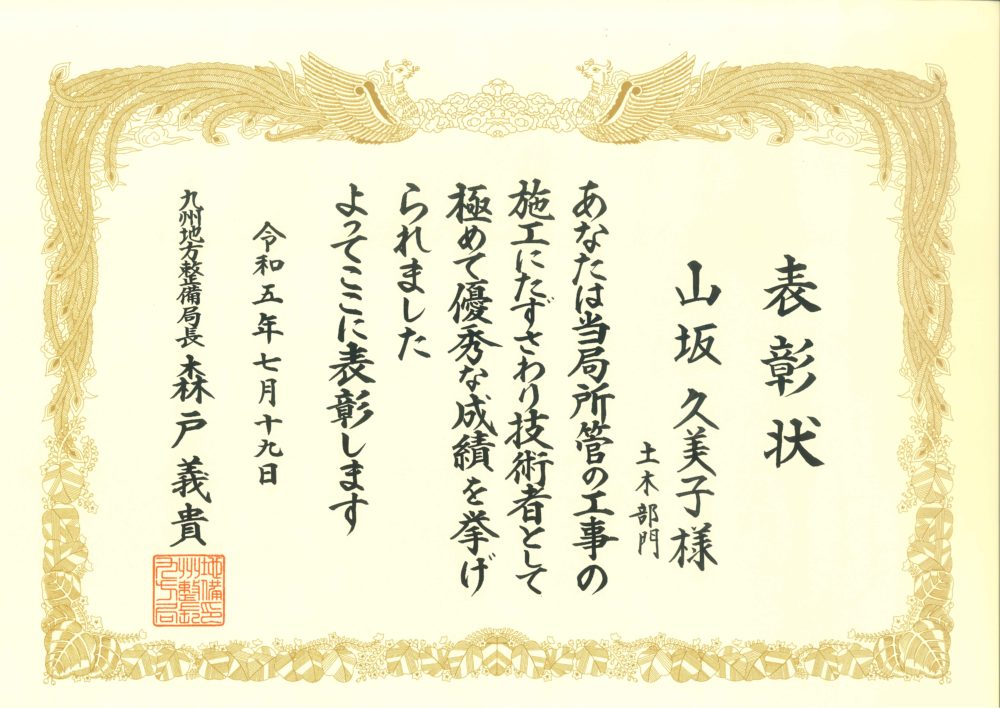 表彰状
山坂 久美子様
土木部門
あなたは当局所管の工事の
施工にたずさわり技術者として
極めて優秀な成績を挙げ
られました
よってここに表彰します
令和五年七月十九日
九州地方整備局長 森戸 義貴